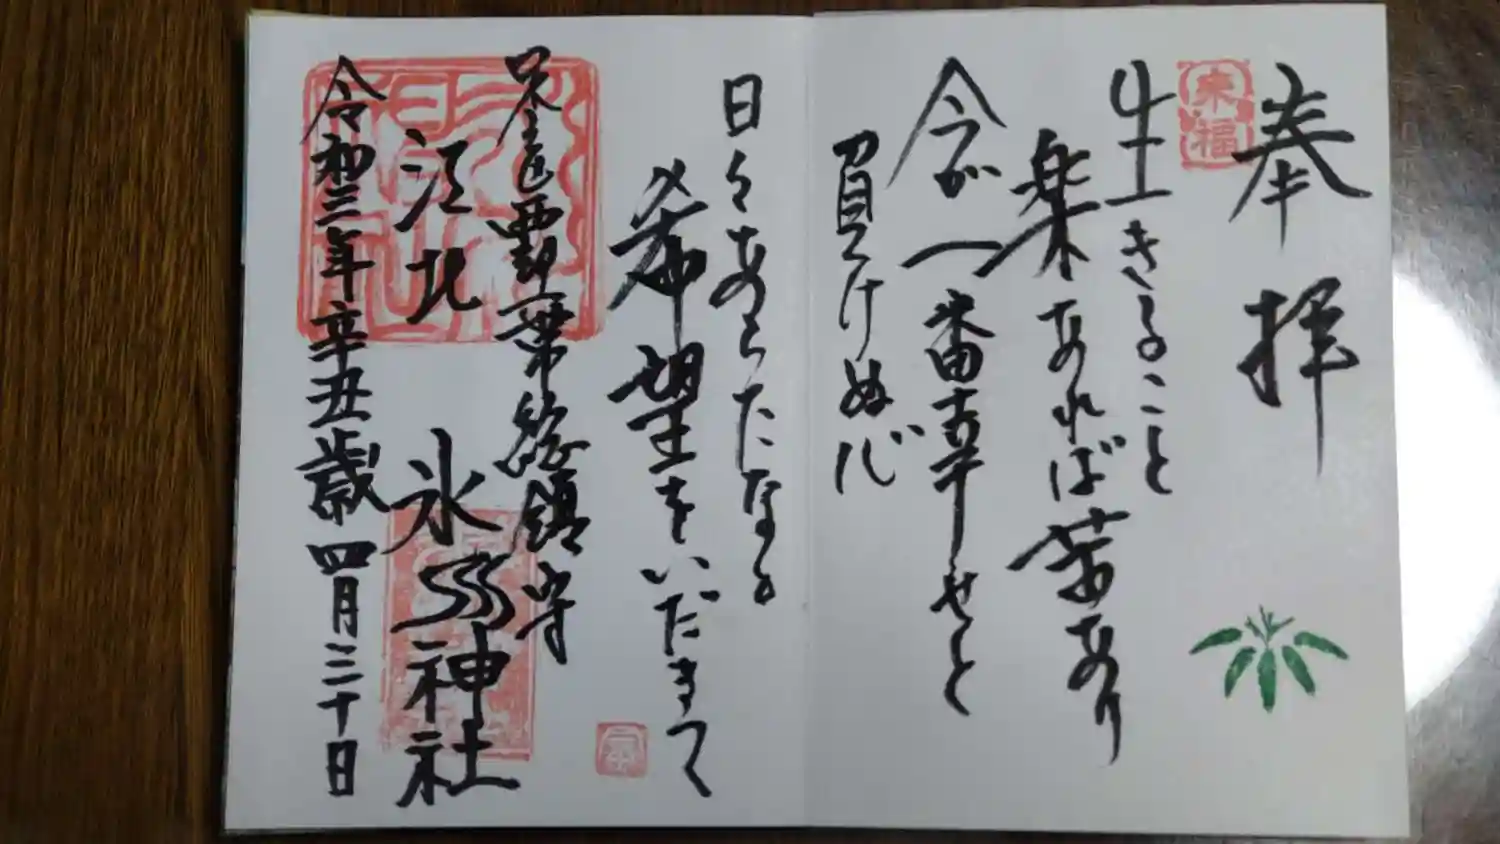 奉拝
来福
生きること
楽あれば苦あり
今が一番幸せと
負けぬ心
日々あらたなる
希望をいだきて
総鎮守
江北氷川神社
令和三年辛丑歳四月三十日